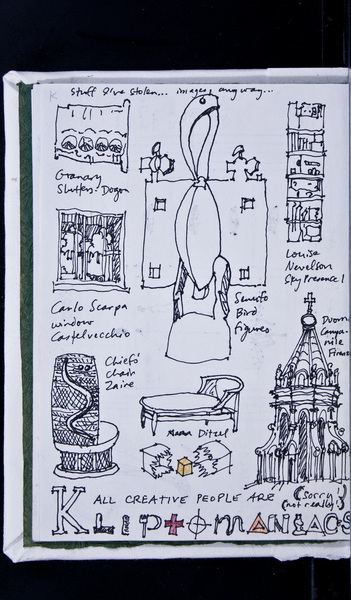 stuff I've stolen... images, anyway...
Granary
Shutters: Dogon
Carlo Scarpa
window
Castelvecchio
Senufo
Bird
Figures
Louise
Nevelson
Sky Presence I
Chiefs'
chair
Zaire
Maria Ditzel
Duomo
Campa-
nile
ALL CREATIVE PEOPLE ARE
(sorry!)
(not really!)
KLIPTOMANIACS